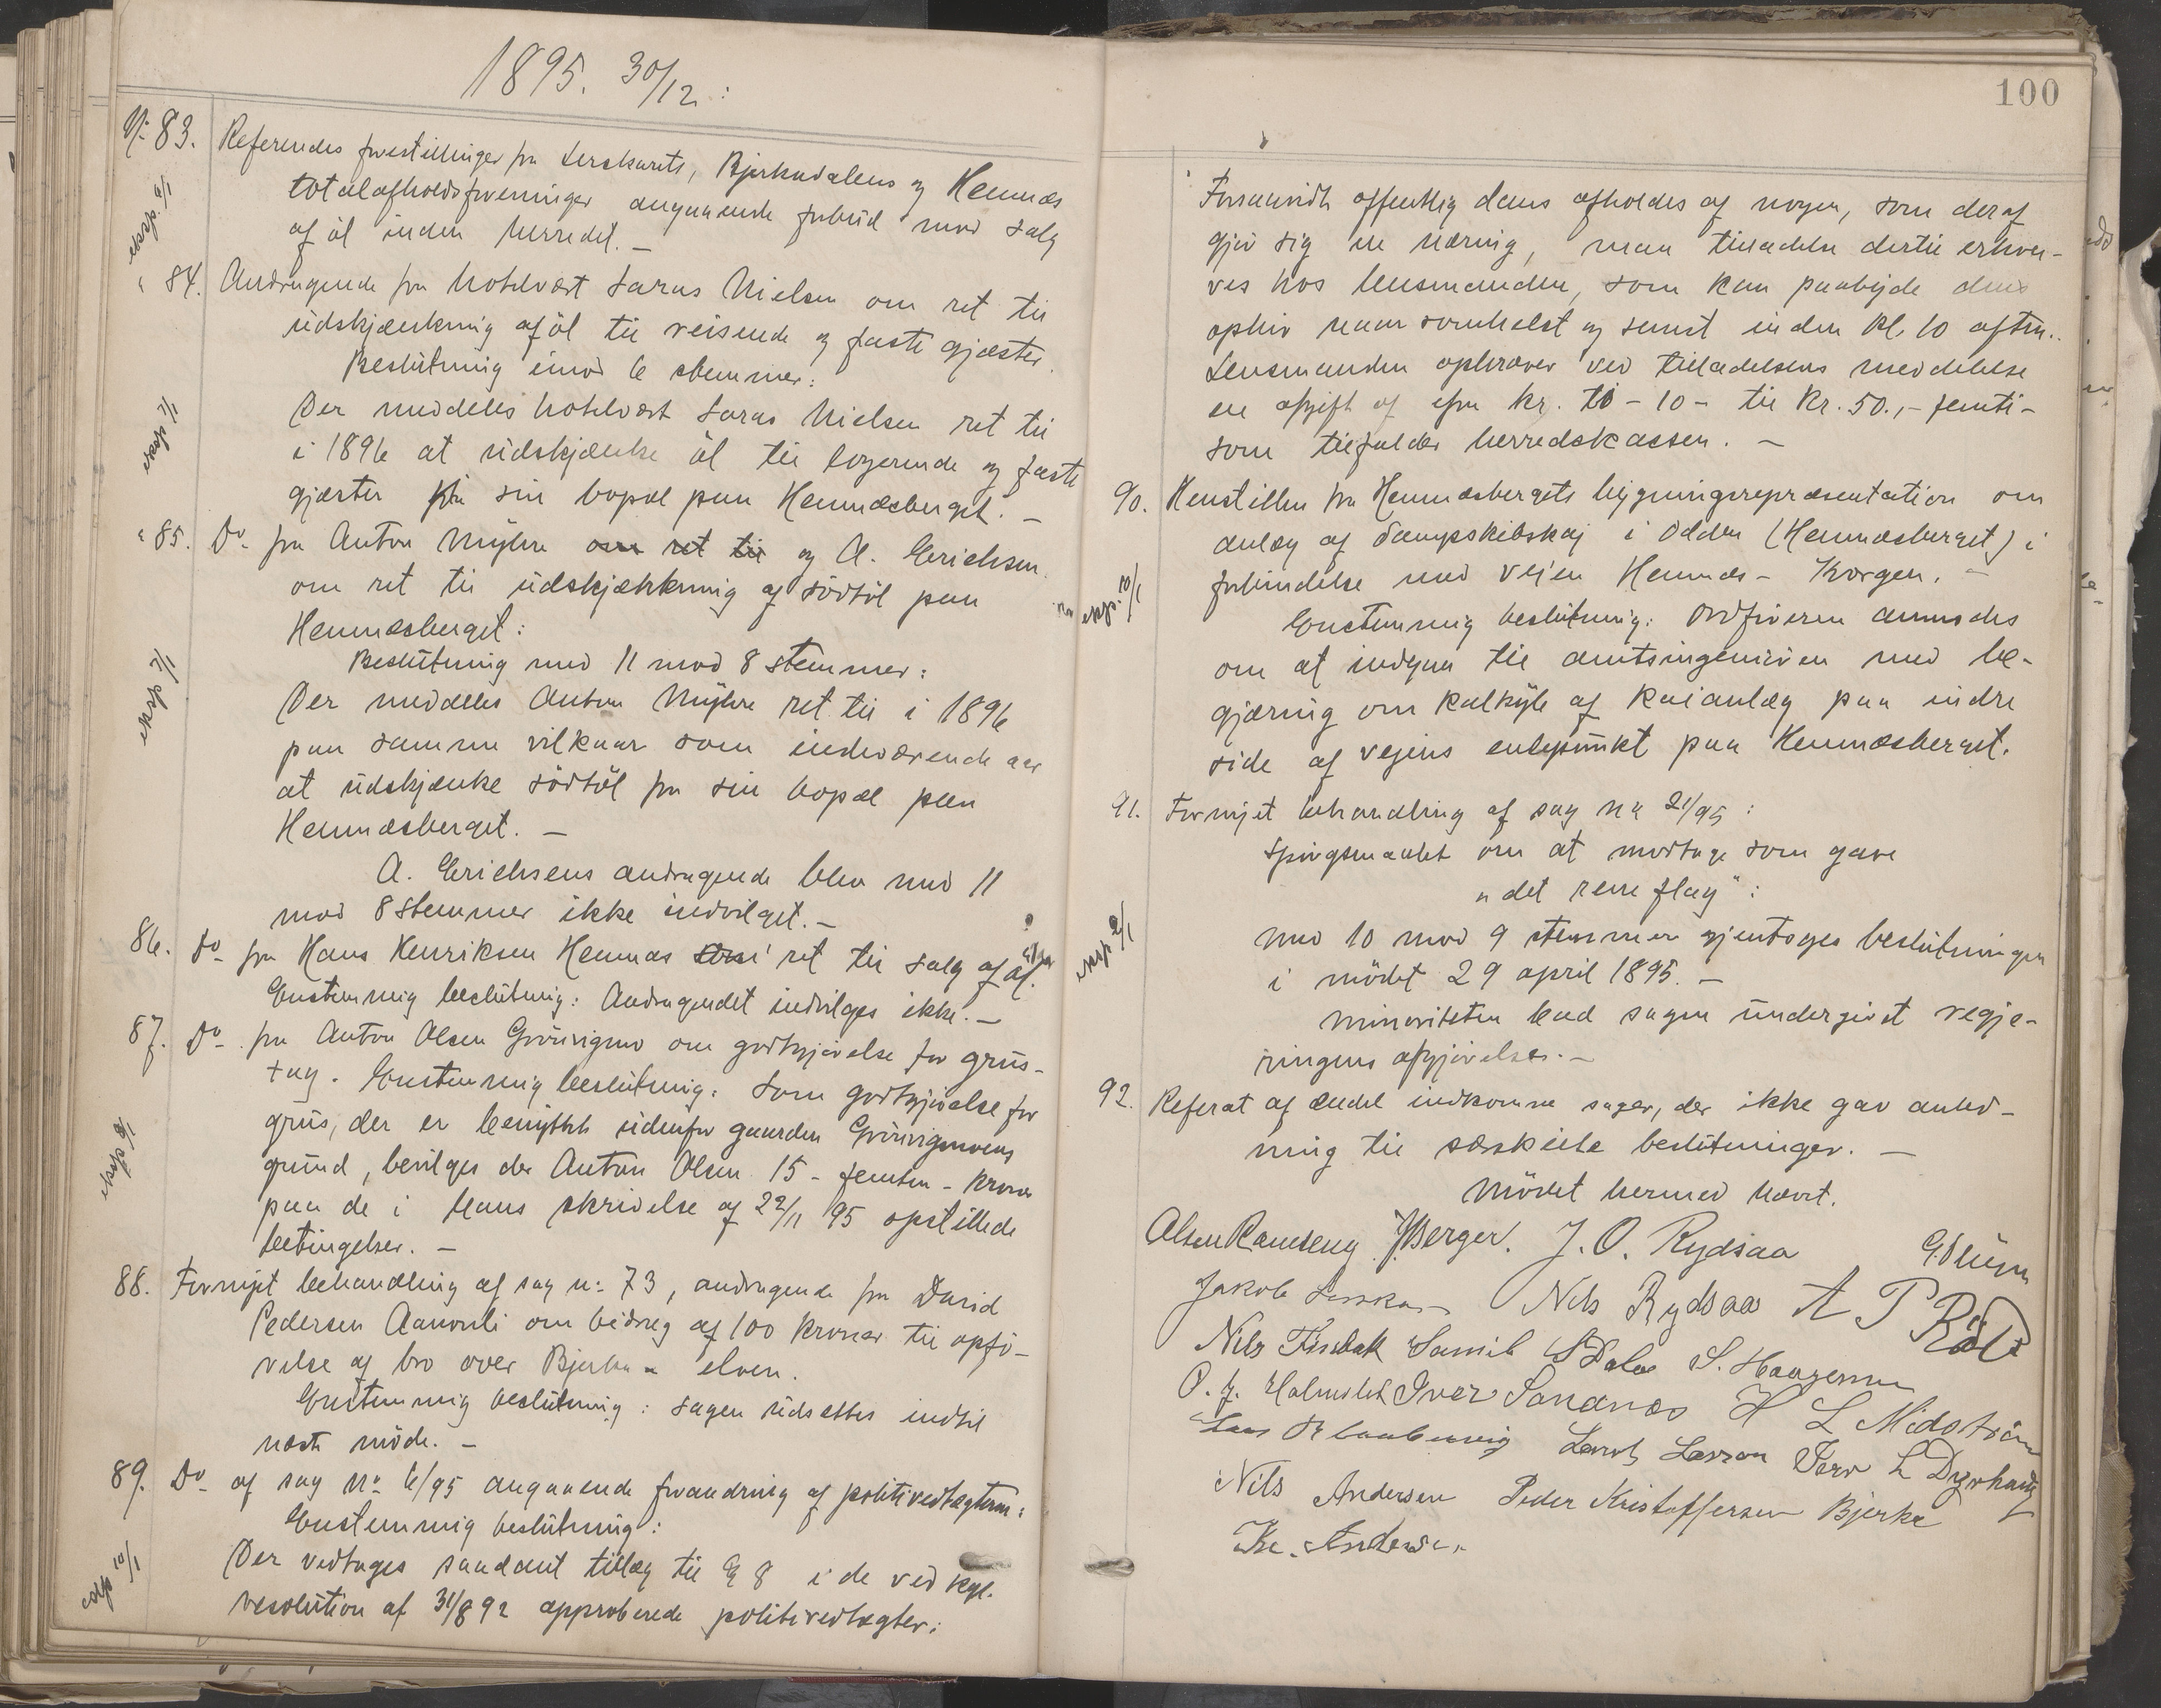 1895. 30/12:
No 83. Referendes forestillinger fra Leerskarets, Bjerkadalens og Hemnæs
totalafholdsforeninger angaaende forbud mod salg
af øl inden herredet. —
" 84. Andragende fra hotelvært Laras Nielsen om ret til
udskjænkning af øl til reisende og faste gjæster.
Beslutning imod 6 stemmer:
Der meddeles hotelvært Laras Nielsen ret til
i 1896 at udskjænke øl til logerende og faste
gjæster fra sin bopæl paa Hemnæsberget. —
" 85. Do fra Anton Myhre om ret til og A. Erichsen
om ret til udskjænkning af sødtøl paa
Hemnæsberget:
Beslutning med 11 mod 8 stemmer:
Der meddeles Anton Myhre ret til i 1896
paa samme vilkaar som indeværende aar
at udskjænke sødtøl fra sin bopæl paa
Hemnæsberget. —
A. Erichsens andragende blev med 11
mod 8 stemmer ikke indvilget. —
86. Do fra Hans Henriksen Hemnæs om ret til salg af øl.
Enstemmig beslutning: Andragendet indvilges ikke. —
87. Do fra Anton Olsen om godtgjørelse for grus-
tag. Enstemmig beslutning: Som godtgjørelse for
grus, der er benyttet udenfor gaarden
grund, bevilges der Anton Olsen 15 - femten - kroner
paa de i hans skrivelse af 22/11 95 opstillede
betingelser. —
88. Fornyet behandling af sag no 73, andragende fra David
Pedersen Aanonli om bidrag af 100 kroner til opfø-
relse af bro over Bjerka - elven.
Enstemmig beslutning: Sagen udsættes indtil
næste møde. —
89. Do af sag No 6/95 angaaende forandring af politivedtægterne:
Enstemmig beslutning:
Der vedtages saadant tillæg til § 8 i de ved kgl.
resolution af 31/8 92 approberede politivedtægter:
eksp. 2/1
eksp 2/1
eksp 2/1
eksp 10/1
100
Forsaavidt offentlig dans afholdes af nogen, som deraf
gjør sig en næring, maa tilladelse dertil erhver-
ves hos lensmanden, som kan paabyde dens
ophør naar somhelst og senest inden Kl. 10 aften.
Lensmanden opkræver ved tilladelsens meddelelse
en afgift af fra kr. ti - 10 - til Kr. 50,- femti -
som tilfalder herredskassen. —
90. Henstillen fra Hemnæsbergets bygningsrepræsentation om
anlæg af dampskibskaj i Odden (Hemnæsberget) i
forbindelse med vejen Hemnæs - Korgen. —
eksp. 10/1
Enstemmig beslutning: Ordføreren anmodes
om at indgaa til amtsingeniøren med be-
gjæring om kalkyle af kaianlæg paa indre
side af vejens endepunkt paa Hemnæsberget.
91. Fornyet behandling af sag No 21/95:
Spørgsmaalet om at modtage som gave
"det rene flag":
eksp. 2/1
Med 10 mod 9 stemmer gjentages beslutningen
i mødet 29 april 1895. —
Minoriteten bad sagen undergivet regje-
ringens afgjørelse. —
92. Referat af endel indkomne sager, der ikke gav anled-
ning til særskilte beslutninger. —
Mødet hermed hævet.
Olsen Ranheseng J Berger. J. O. Rydsaa
Jakob Nils Rydsaa A P
Nils Finbak S. Haagensen
O. J. Iver Sandnæs H L Midtstrøm
Larsen L
Nils Andersen Peder Kristoffersen Bjerka
Andersen